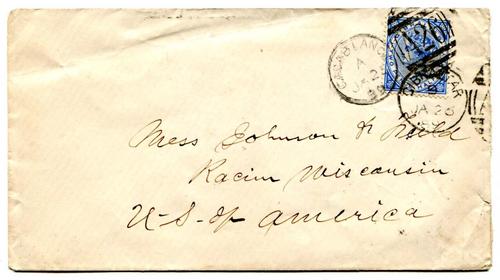 CASABLANCA
A
JA 2
A26
GIBRALTAR
JA 26
Mess Johnson & Field
Racine Wisconsin
U-S-of america